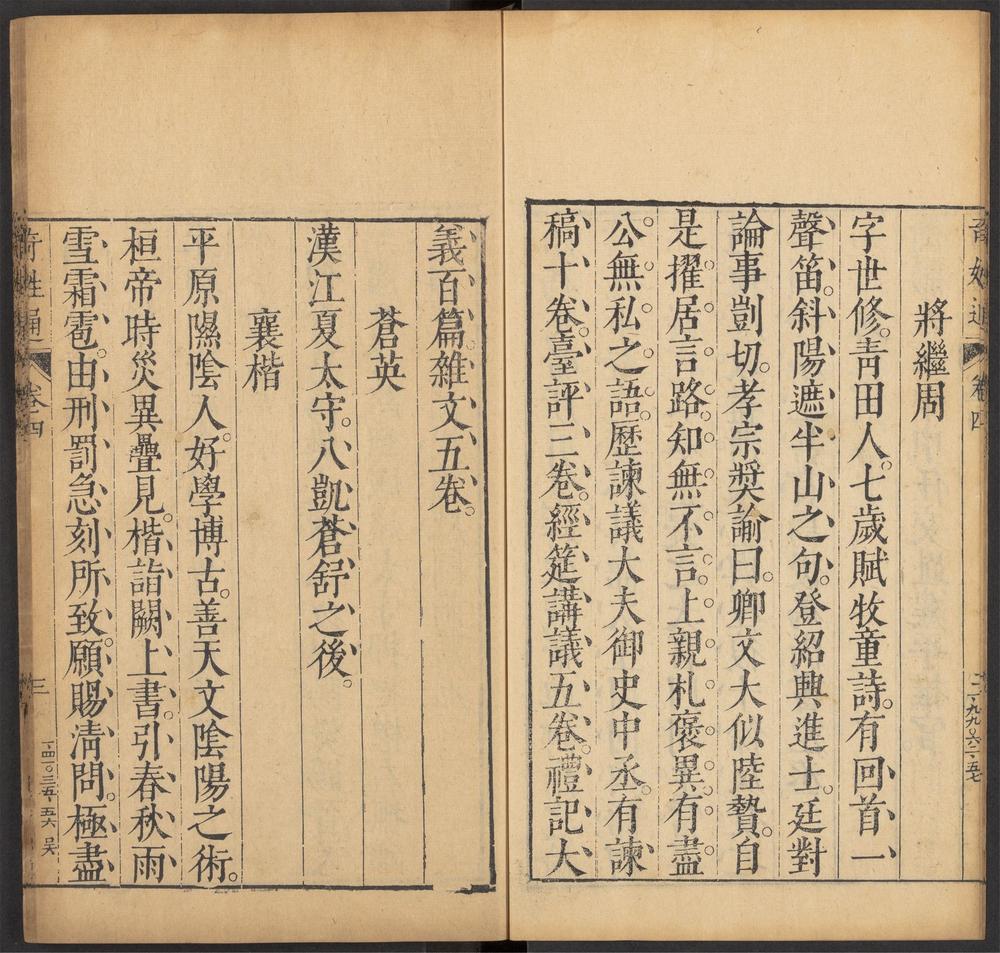 將繼周
字世修。靑田人。七歲賦牧童詩。有回首一
聲笛。斜陽遮半山之句。登紹興進士。廷對
論事剴切。孝宗獎諭曰。卿文大似陸贄。自
是擢居言路。知無不言。上親札褒異。有盡
公無私之語。歷諫議大夫御史中丞。有諫
稿十卷。臺評三卷。經筵講議五卷。禮記大
義百篇。雜文五卷。
蒼英
漢江夏太守。八凱蒼舒之後。
襄楷
平原隰陰人。好學博古。善天文陰陽之術。
桓帝時災異疊見。楷詣闕上書。引春秋雨
雪霜雹。由刑罰急刻所致。願賜淸問。極盡
奇姓通
卷四
三